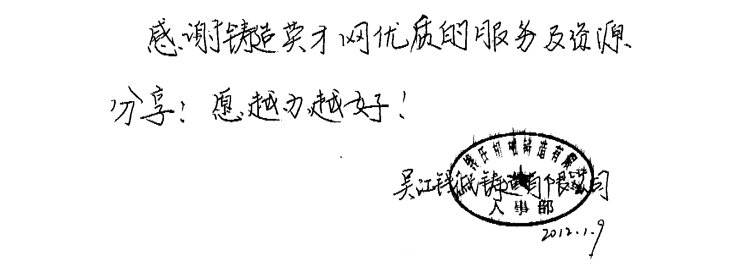 感谢铸造英才网优质的服务及资源
分享！愿越办越好！
吴江 铸造有限公司
机械铸造有限
人事部
2012.1.9